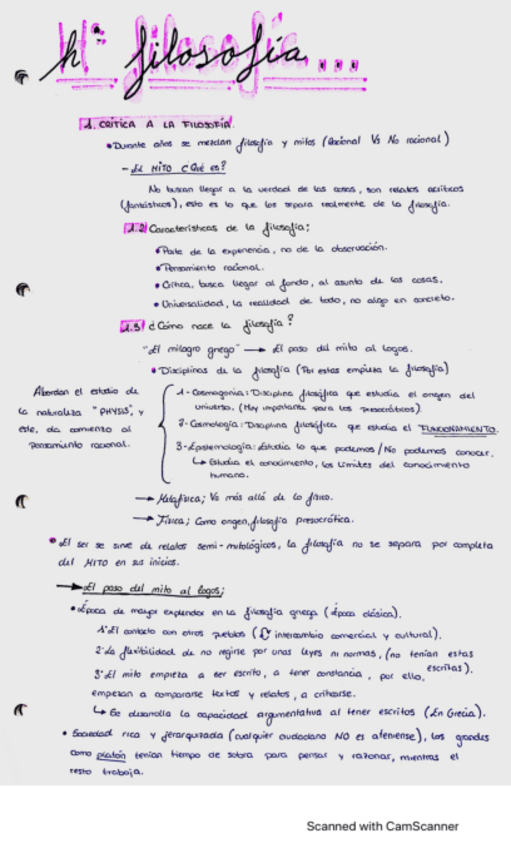 Hª filosofía...
1. CRÍTICA A LA FILOSOFÍA.
• Durante años se mezclan filosofía y mitos (Racional Vs No racional)
- El MITO ¿Qué es?
No buscan llegar a la verdad de las cosas, son relatos acríticos
(fantásticos), esto es lo que los separa realmente de la filosofía.
1.2 Características de la filosofía;
• Parte de la experiencia, no de la observación.
• Pensamiento racional.
• Crítica, busca llegar al fondo, al asunto de las cosas.
• Universalidad, la realidad de todo, no algo en concreto.
1.3 ¿Cómo nace la filosofía?
"El milagro griego" → El paso del mito al logos.
• Disciplinas de la filosofía (Por estas empieza la filosofía)
Abordan el estudio de
la naturaleza "PHYSIS", y
este, da comienzo al
pensamiento racional.
1- Cosmogonia: Disciplina filosófica que estudia el origen del
universo. (Muy importante para los presocráticos).
2- Cosmología: Disciplina filosófica que estudia el "FUNCIONAMIENTO.
3- Epistemología: Estudia lo que podemos / No podemos conocer.
↳ Estudia el conocimiento, los límites del conocimiento
humano.
→ Metafísica; Va más allá de lo físico.
→ Física; Como origen, filosofía presocrática.
• El ser se sirve de relatos semi-mitológicos, la filosofía no se separa por completa
del MITO en sus inicios.
→ El paso del mito al logos;
• Época de mayor explendor en la filosofía griega (época clásica).
1º El contacto con otros pueblos (intercambio comercial y cultural).
2º La flexibilidad de no regirse por unas leyes ni normas, (no tenían estas
escritas).
3º El mito empieza a ser escrito, a tener constancia, por ello,
empezan a compararse textos y relatos, a criticarse.
↳ Se desarrolla la capacidad argumentativa al tener escritos (En Grecia).
• Sociedad rica y jerarquizada (cualquier ciudadano NO es ateniense), los grandes
como platón tenían tiempo de sobra para pensar y razonar, mientras el
resto trabaja.
Scanned with CamScanner